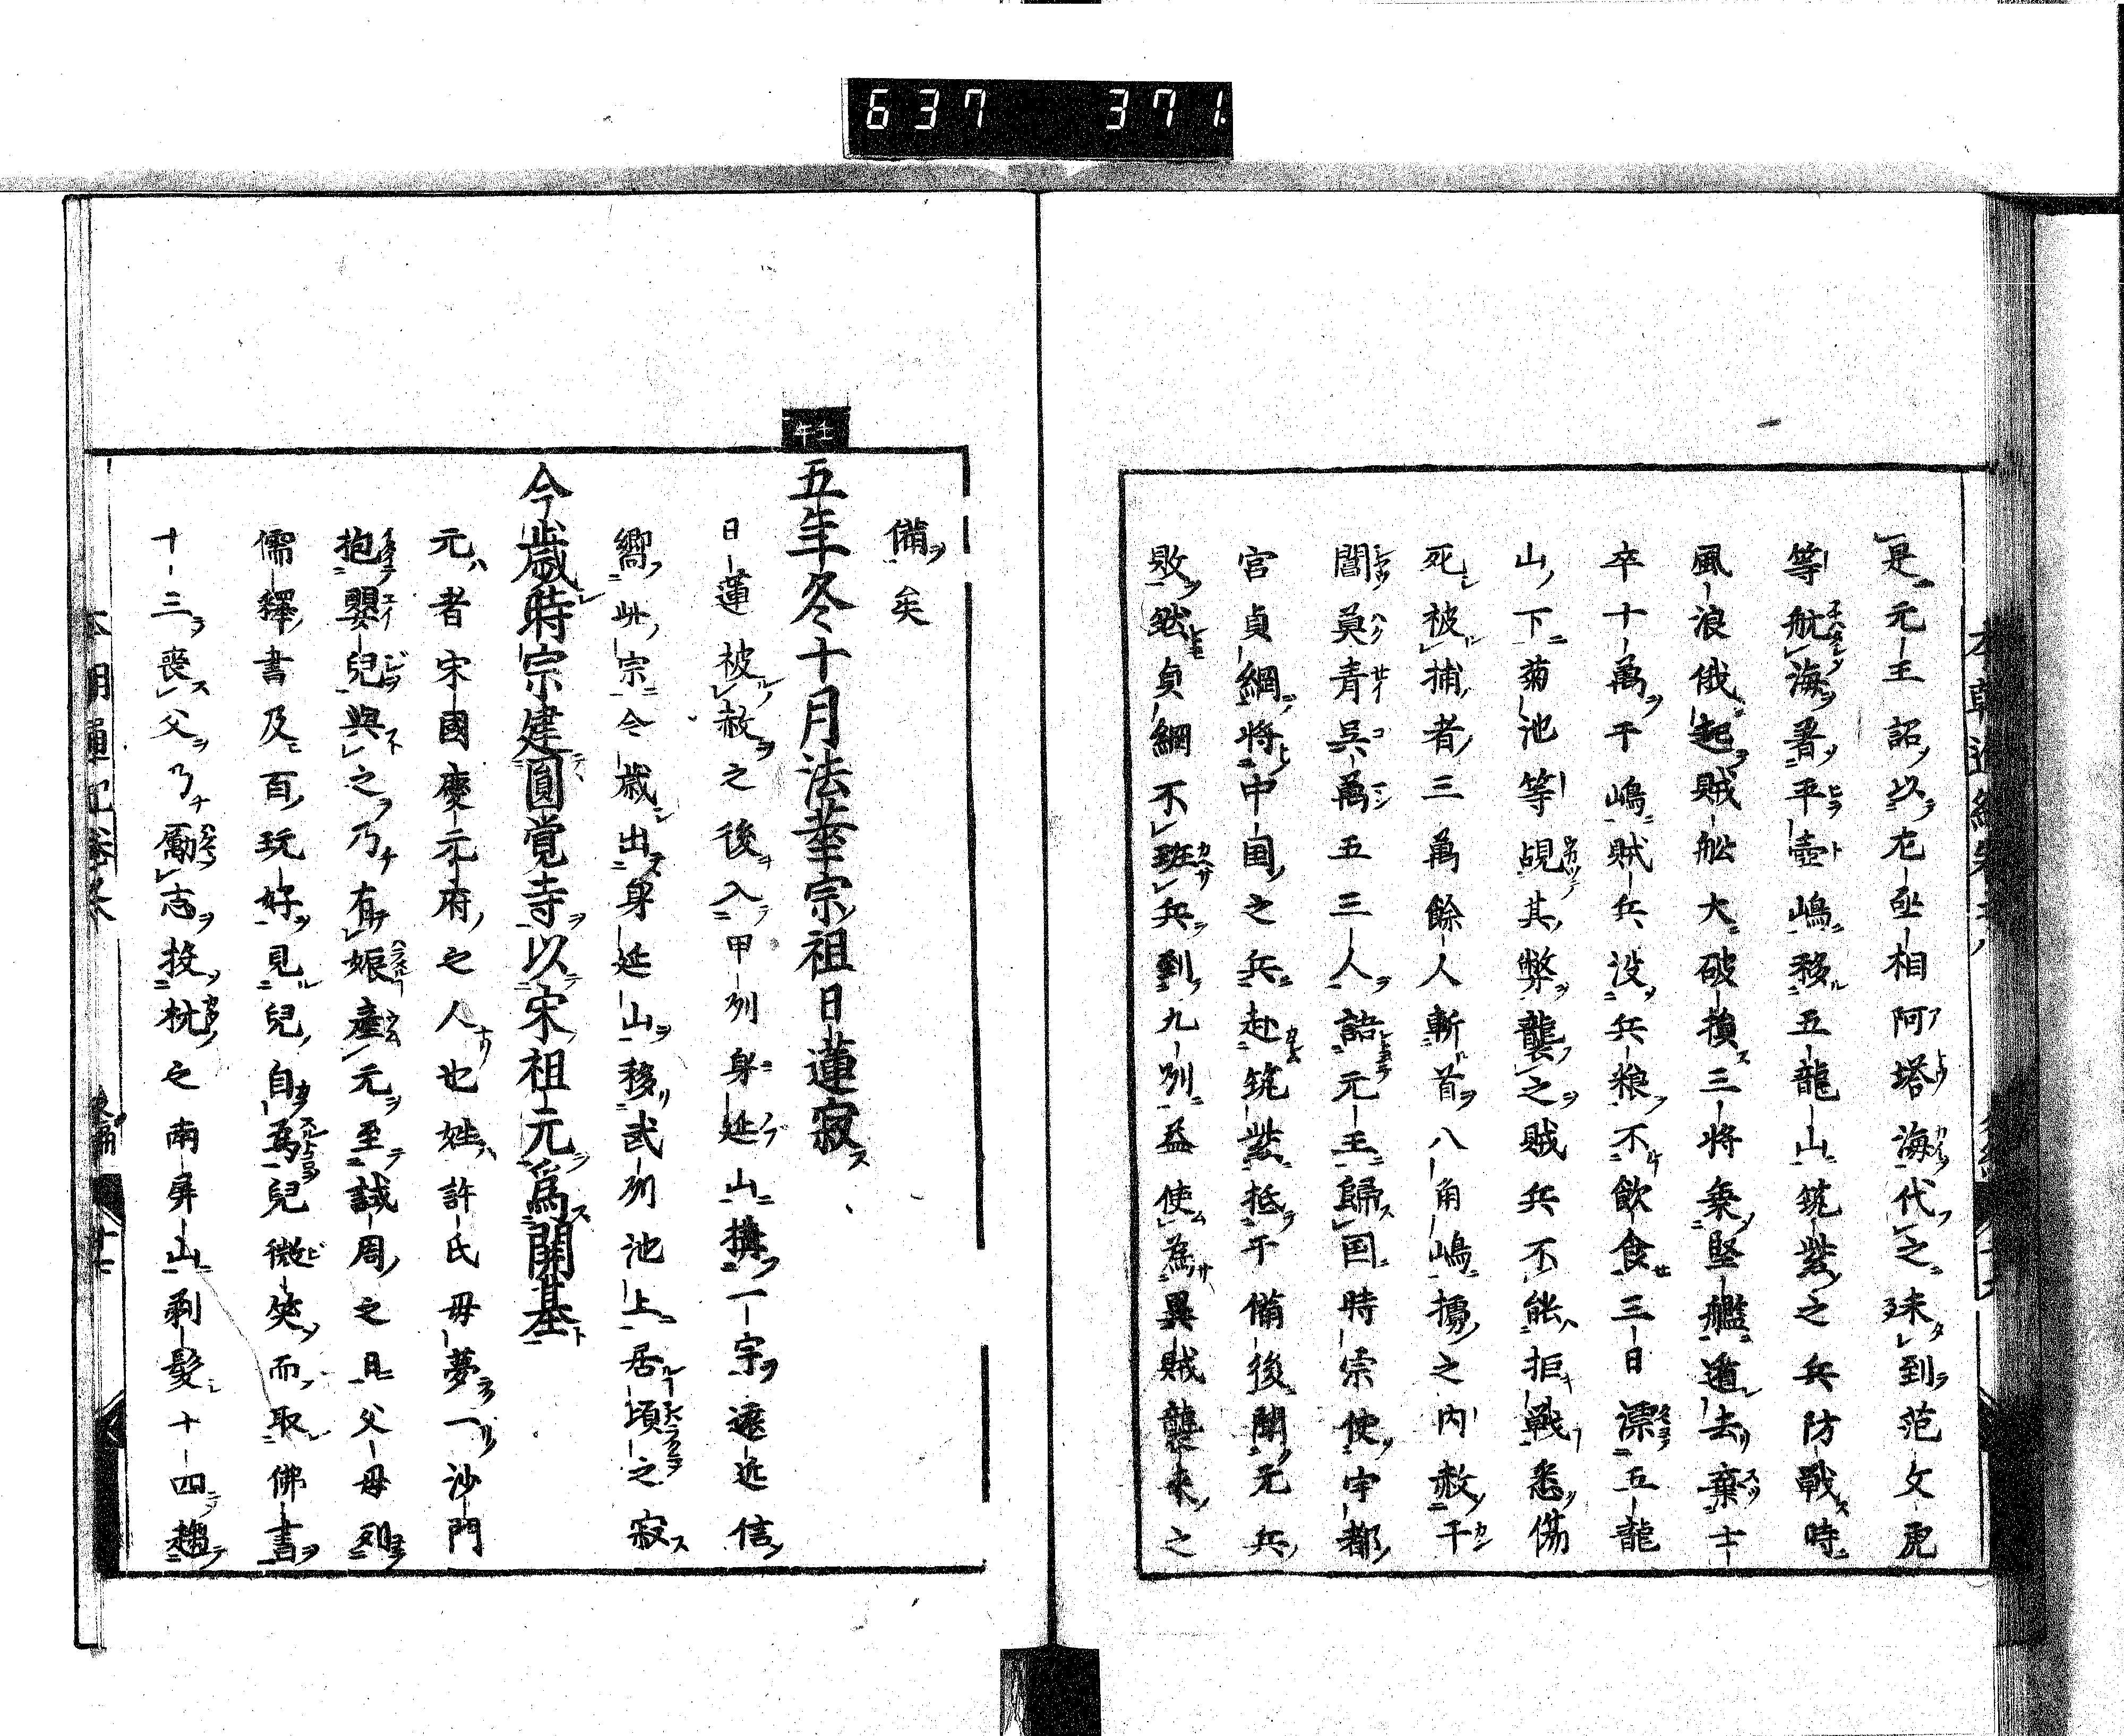 637 371
是元王詔以左丞相阿塔海代之未到范文虎
等航海畧平壺嶋移五龍山筑紫之兵防戰時
風浪俄起賊舩大破損三将乗堅艦遁去棄士
卒十萬于嶋賊兵没兵粮不飲食三日漂五龍
山下菊池等覘其弊襲之賊兵不能拒戦悉傷
死被捕者三萬餘人斬首八角嶋擄之内赦干
閶莫青吳萬五三人詣元王歸国時宗使宇都
宮貞綱將中国之兵赴筑紫抵于備後聞元兵
敗然貞綱不班兵到九州益使為異賊襲来之
備矣
壬午
五年冬十月法華宗祖日蓮寂
日蓮被赦之後入甲州身延山搆一宗遠近信
嚮此宗今歳出身延山移武州池上居頃之寂
今歳時宗建圓覚寺以宋祖元爲開基
元者宋國慶元府之人也姓許氏母夢一沙門
抱嬰兒與之乃有娠產元至誠周之且父母列
儒釋書及百玩好見兒自爲兒微笑而取佛書
十三喪父乃勵志投杭之南屏山剃髮十四趨